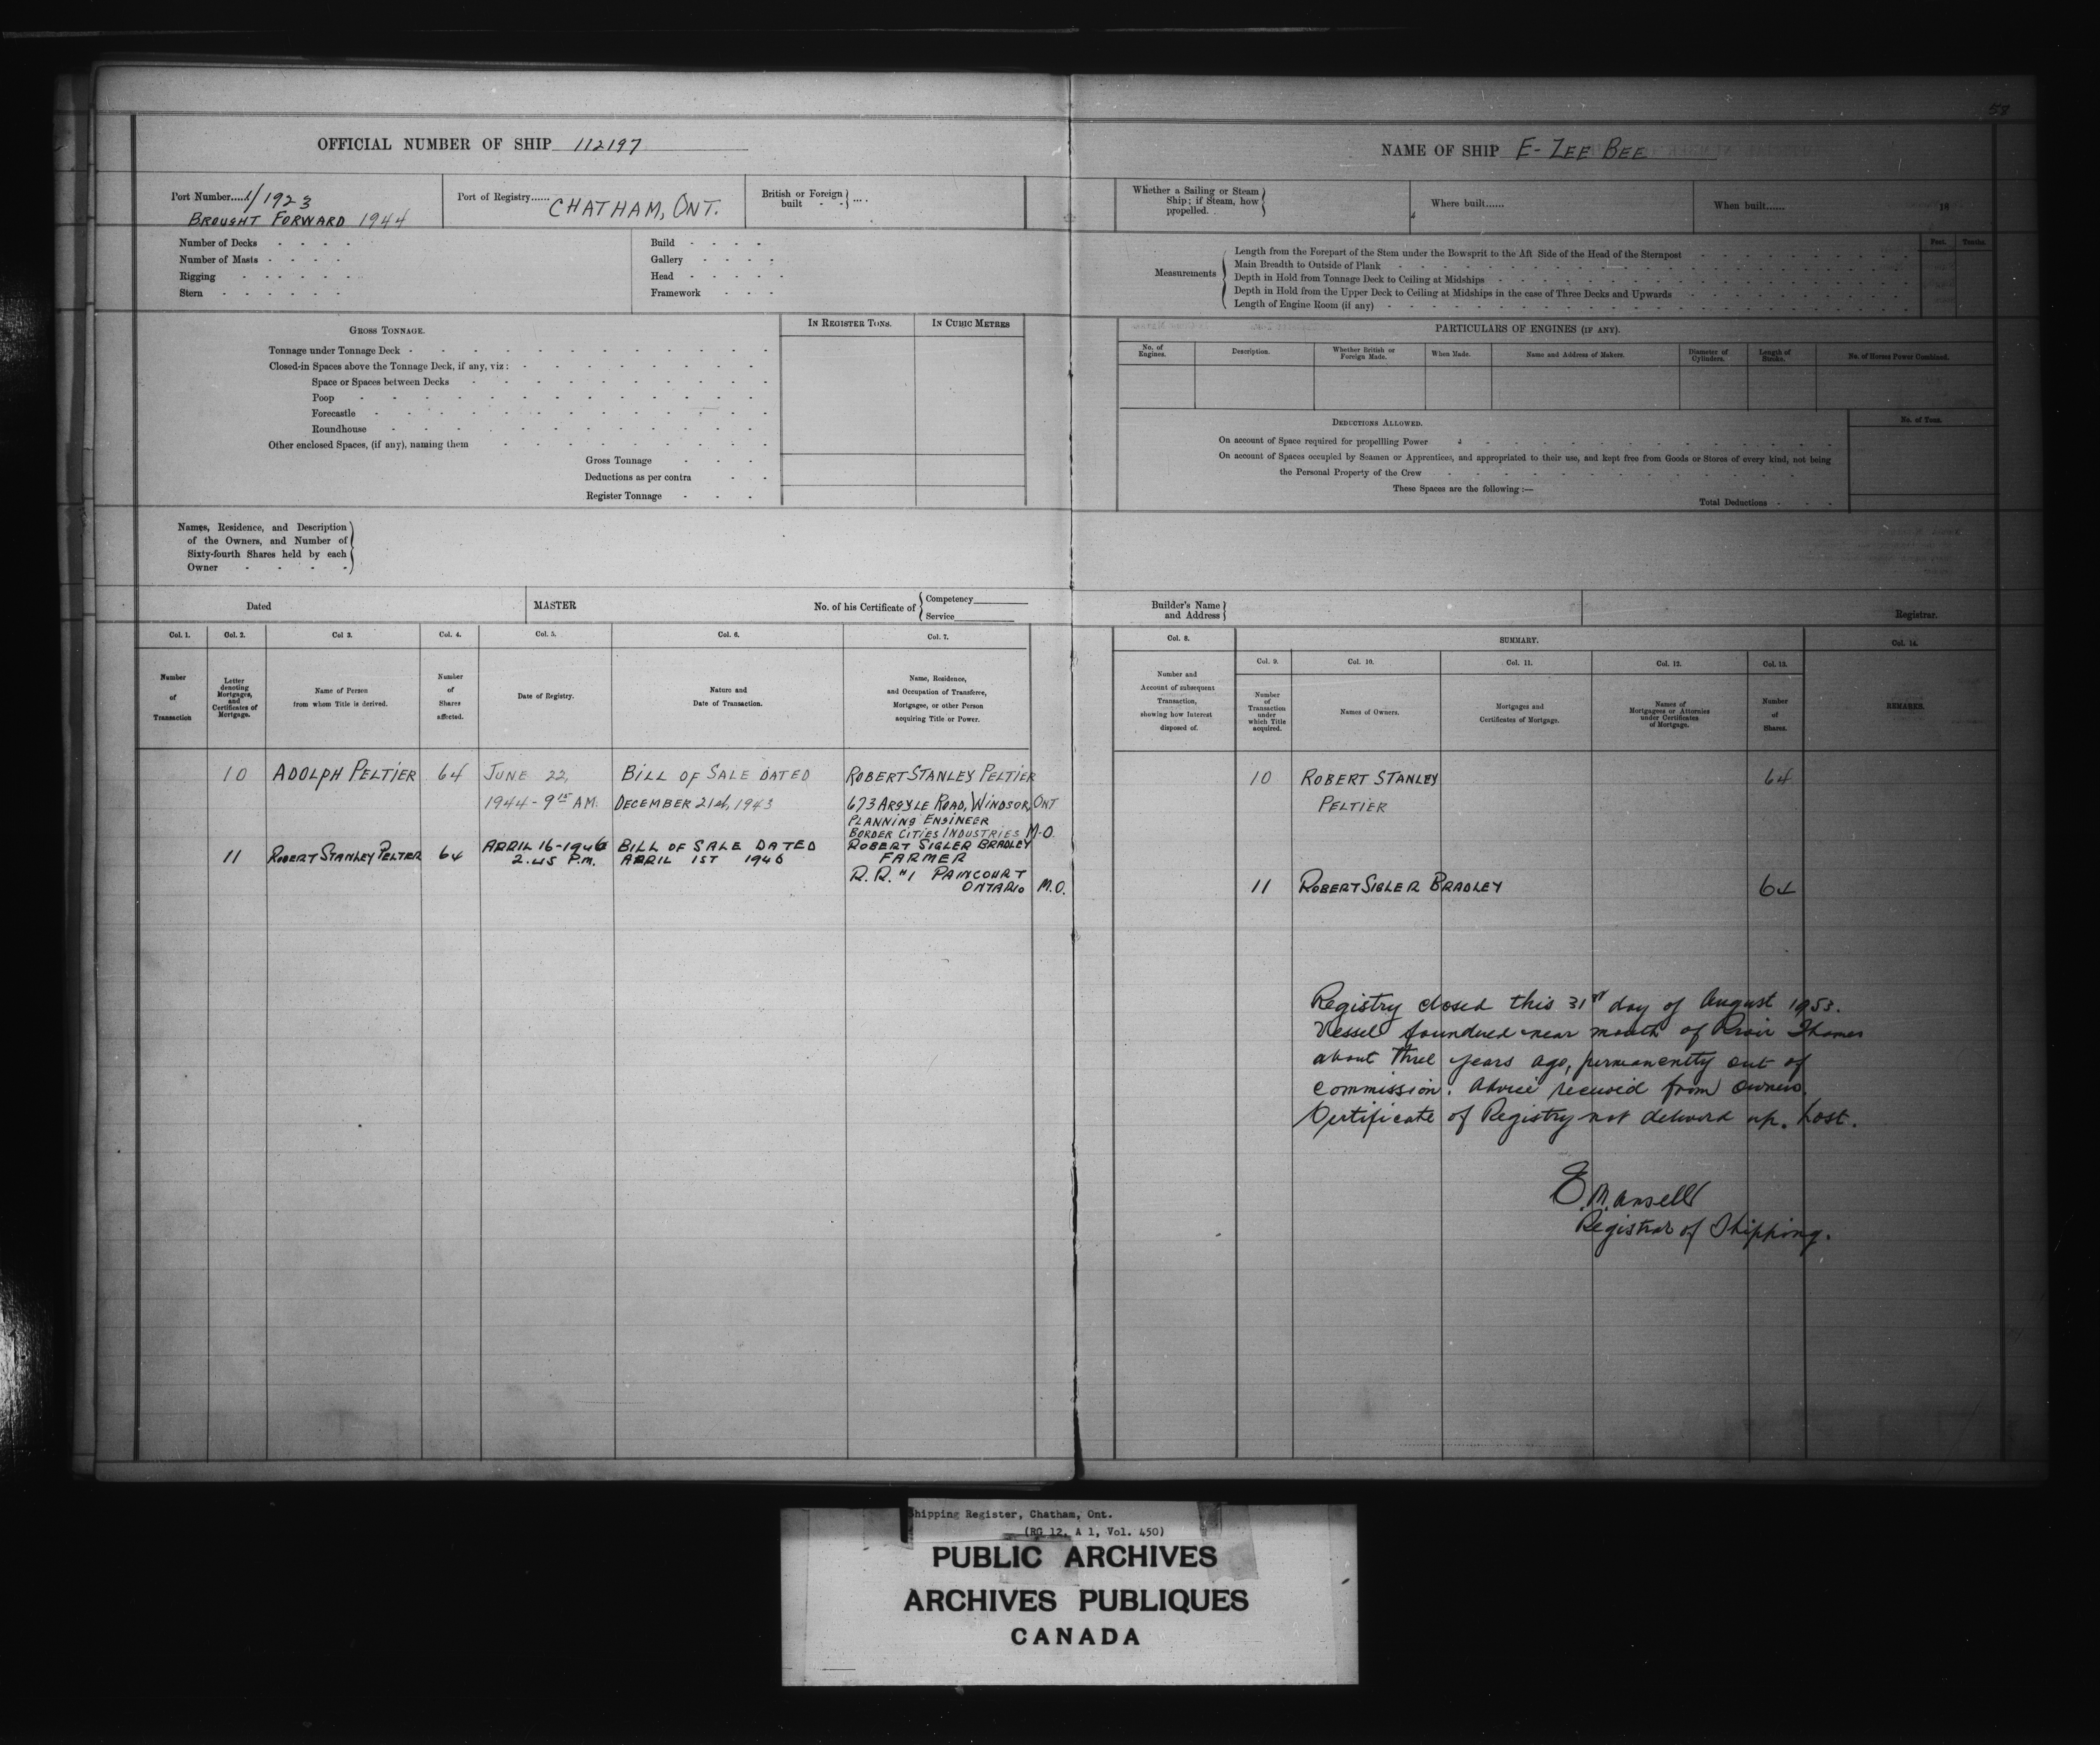 58
OFFICIAL NUMBER OF SHIP 112197
Port Number.....1/1923
BROUGHT FORWARD 1944
Port of Registry...... CHATHAM, ONT.
British or Foreign
built - - ....
Number of Decks
Number of Masts
Rigging
Stern
Build
Gallery
Head
Framework
GROSS TONNAGE.
IN REGISTER TONS.
IN CUBIC METRES
Tonnage under Tonnage Deck
Closed-in Spaces above the Tonnage Deck, if any, viz:
Space or Spaces between Decks
Poop
Forecastle
Roundhouse
Other enclosed Spaces, (if any), naming them
Gross Tonnage
Deductions as per contra
Register Tonnage
Names, Residence, and Description
of the Owners, and Number of
Sixty-fourth Shares held by each
Owner
Dated
MASTER
No. of his Certificate of
Competency
Service
Col. 1.
Col. 2.
Col 3.
Col. 4.
Col. 5.
Col. 6.
Col. 7.
Number
of
Transaction
Letter
denoting
Mortgages,
and
Certificates of
Mortgage.
Name of Person
from whom Title is derived.
Number
of
Shares
affected.
Date of Registry.
Nature and
Date of Transaction.
Name, Residence,
and Occupation of Transferee,
Mortgagee, or other Person
acquiring Title or Power.
10 ADOLPH PELTIER 64 JUNE 22, BILL OF SALE DATED ROBERT STANLEY PELTIER
1944 - 9 15 A.M. DECEMBER 21st, 1943 673 ARGYLE ROAD, WINDSOR, ONT
PLANNING ENGINEER
BORDER CITIES INDUSTRIES M.O.
11 ROBERT STANLEY PELTIER 64 APRIL 16-1946 BILL OF SALE DATED ROBERT SIGLER BRADLEY
2.45 P.M. APRIL 1ST 1946 FARMER
R.R. #1 PAINCOURT
ONTARIO M.O.
NAME OF SHIP E-ZEE BEE
Whether a Sailing or Steam
Ship; if Steam, how
propelled.
Where built......
When built...... 18
Measurements
Length from the Forepart of the Stem under the Bowsprit to the Aft Side of the Head of the Sternpost
Main Breadth to Outside of Plank
Depth in Hold from Tonnage Deck to Ceiling at Midships
Depth in Hold from the Upper Deck to Ceiling at Midships in the case of Three Decks and Upwards
Length of Engine Room (if any)
Feet. Tenths.
PARTICULARS OF ENGINES (IF ANY).
No. of
Engines.
Description.
Whether British or
Foreign Made.
When Made.
Name and Address of Makers.
Diameter of
Cylinders.
Length of
Stroke.
No. of Horses Power Combined.
DEDUCTIONS ALLOWED.
No. of Tons.
On account of Space required for propellling Power
On account of Spaces occupied by Seamen or Apprentices, and appropriated to their use, and kept free from Goods or Stores of every kind, not being
the Personal Property of the Crew
These Spaces are the following:—
Total Deductions
Builder's Name
and Address
Registrar.
Col. 8.
SUMMARY.
Col. 14.
Col. 9.
Col. 10.
Col. 11.
Col. 12.
Col. 13.
Number and
Account of subsequent
Transaction,
showing how Interest
disposed of.
Number
of
Transaction
under
which Title
acquired.
Names of Owners.
Mortgages and
Certificates of Mortgage.
Names of
Mortgagees or Attornies
under Certificates
of Mortgage.
Number
of
Shares.
REMARKS.
10 ROBERT STANLEY 64
PELTIER
11 ROBERT SIGLER BRADLEY 64
Registry closed this 31st day of August 1953.
Vessel foundered near mouth of River Thames
about three years ago, permanently out of
commission. Advice received from owners.
Certificate of Registry not delivered up. Lost.
E. Mansell
Registrar of Shipping.
Shipping Register, Chatham, Ont.
(RG 12, A 1, Vol. 450)
PUBLIC ARCHIVES
ARCHIVES PUBLIQUES
CANADA